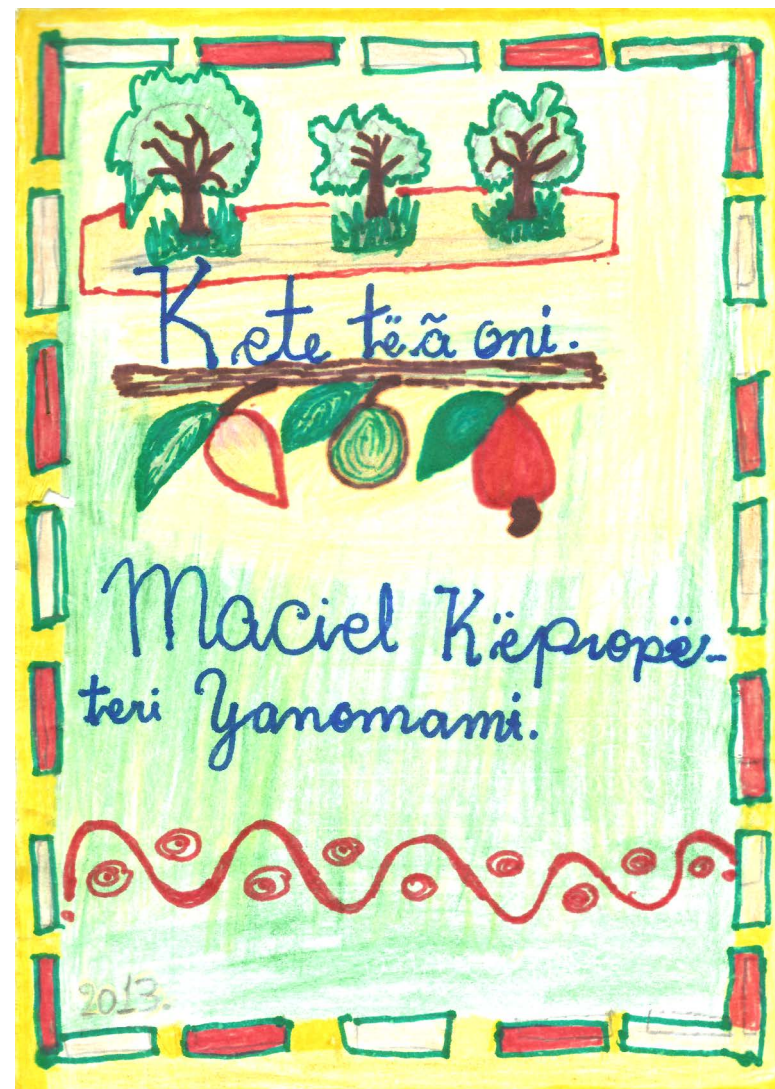 Kete tëã oni.
Maciel Këpropë-
teri Yanomami.
2013.